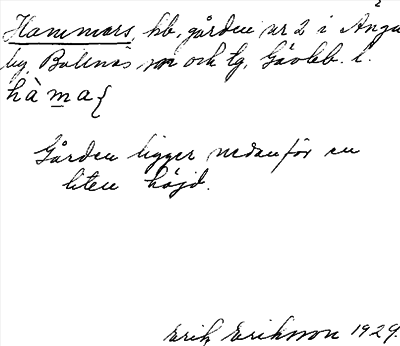 Hammars, hb, gården nr 2 i Änga
by, Bollnäs sn och tg, Gävleb. l.
hàma{
Gården ligger nedanför en
liten höjd.
Erik Eriksson 1929.